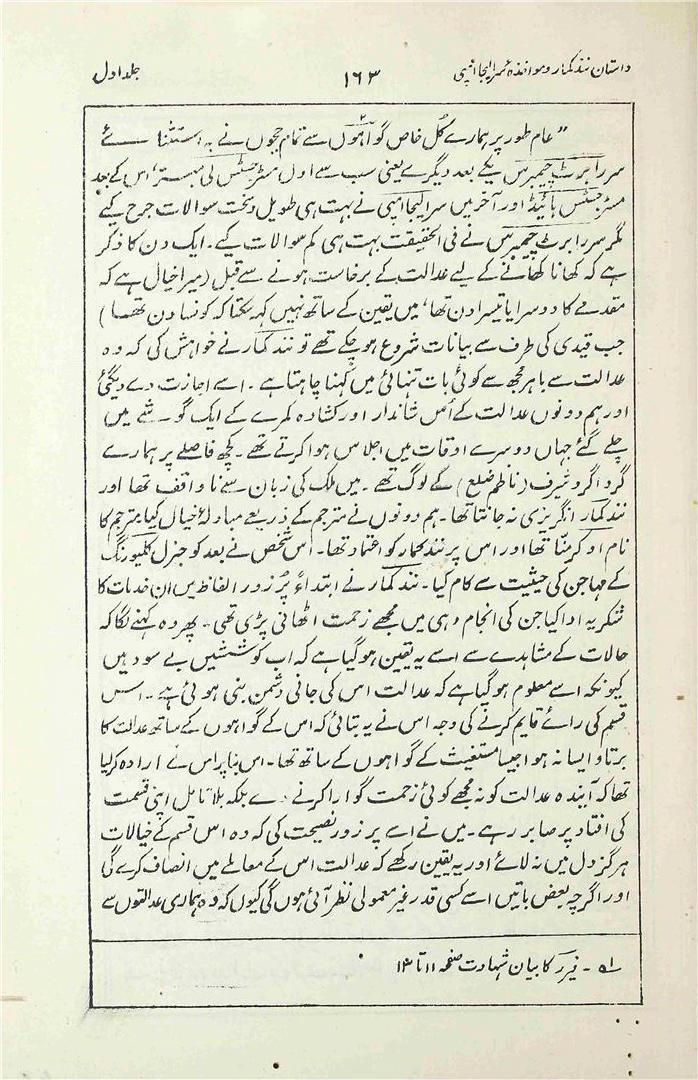 داستان نند کمار و مواخذہ سر ایلجا امپی
۱۶۳
جلد اول
”عام طور پر ہمارے کل خاص گواہوں سے تمام ججوں نے بہ استثنائے
سر رابرٹ چیمبرس یکے بعد دیگرے یعنی سب سے اول مسٹر جسٹس لی میستر، اس کے بعد
مسٹر جسٹس ہائیڈ اور آخر میں سر ایلجا امپی نے بہت ہی طویل و سخت سوالات جرح کیے
مگر سر رابرٹ چیمبرس نے فی الحقیقت بہت ہی کم سوالات کیے۔ ایک دن کا ذکر
ہے کہ کھانا کھانے کے لیے عدالت کے برخاست ہونے سے قبل (میرا خیال ہے کہ
مقدمے کا دوسرا یا تیسرا دن تھا، میں یقین کے ساتھ نہیں کہہ سکتا کہ کونسا دن تھا)
جب قیدی کی طرف سے بیانات شروع ہوچکے تھے تو نند کمار نے خواہش کی کہ وہ
عدالت سے باہر مجھ سے کوئی بات تنہائی میں کہنا چاہتا ہے۔ اسے اجازت دے دیگئی
اور ہم دونوں عدالت کے اُس شاندار اور کشادہ کمرے کے ایک گوشے میں
چلے گئے جہاں دوسرے اوقات میں اجلاس ہوا کرتے تھے۔ کچھ فاصلے پر ہمارے
گرد اگرد شیرف (ناظم ضلع) کے لوگ تھے۔ میں ملک کی زبان سے نا واقف تھا اور
نند کمار انگریزی نہ جانتا تھا۔ ہم دونوں نے مترجم کے ذریعے مبادلۂ خیال کیا، مترجم کا
نام او کرمنا تھا اور اس پر نند کمار کو اعتماد تھا۔ اس شخص نے بعد کو جنرل کلیورنگ
کے مہاجن کی حیثیت سے کام کیا۔ نند کمار نے ابتداءً پُر زور الفاظ میں ان خدمات کا
شکریہ ادا کیا جن کی انجام دہی میں مجھے زحمت اٹھانی پڑی تھی۔ پھر وہ کہنے لگا کہ
حالات کے مشاہدے سے اسے یہ یقین ہوگیا ہے کہ اب کوششیں بے سود ہیں
کیونکہ اسے معلوم ہوگیا ہے کہ عدالت اس کی جانی دشمن بنی ہوئی ہے۔ اس
قسم کی رائے قایم کرنے کی وجہ اس نے یہ بتائی کہ اس کے گواہوں کے ساتھ عدالت کا
برتاو ایسا نہ ہوا جیسا مستغیث کے گواہوں کے ساتھ تھا۔ اس بنا پر اس نے ارادہ کرلیا
تھا کہ آیندہ عدالت کو نہ مجھے کوئی زحمت گوارا کرنے دے بلکہ بلا تامل اپنی قسمت
کی افتاد پر صابر رہے۔ میں نے اسے پر زور نصیحت کی کہ وہ اس قسم کے خیالات
ہرگز دل میں نہ لائے اور یہ یقین رکھے کہ عدالت اس کے معاملے میں انصاف کرے گی
اور اگرچہ بعض باتیں اسے کسی قدر غیر معمولی نظر آئی ہوں گی کیوں کہ وہ ہماری عدالتوں سے
۱؎ - فیرر کا بیان شہادت صفحہ ۱۱ تا ۱۳